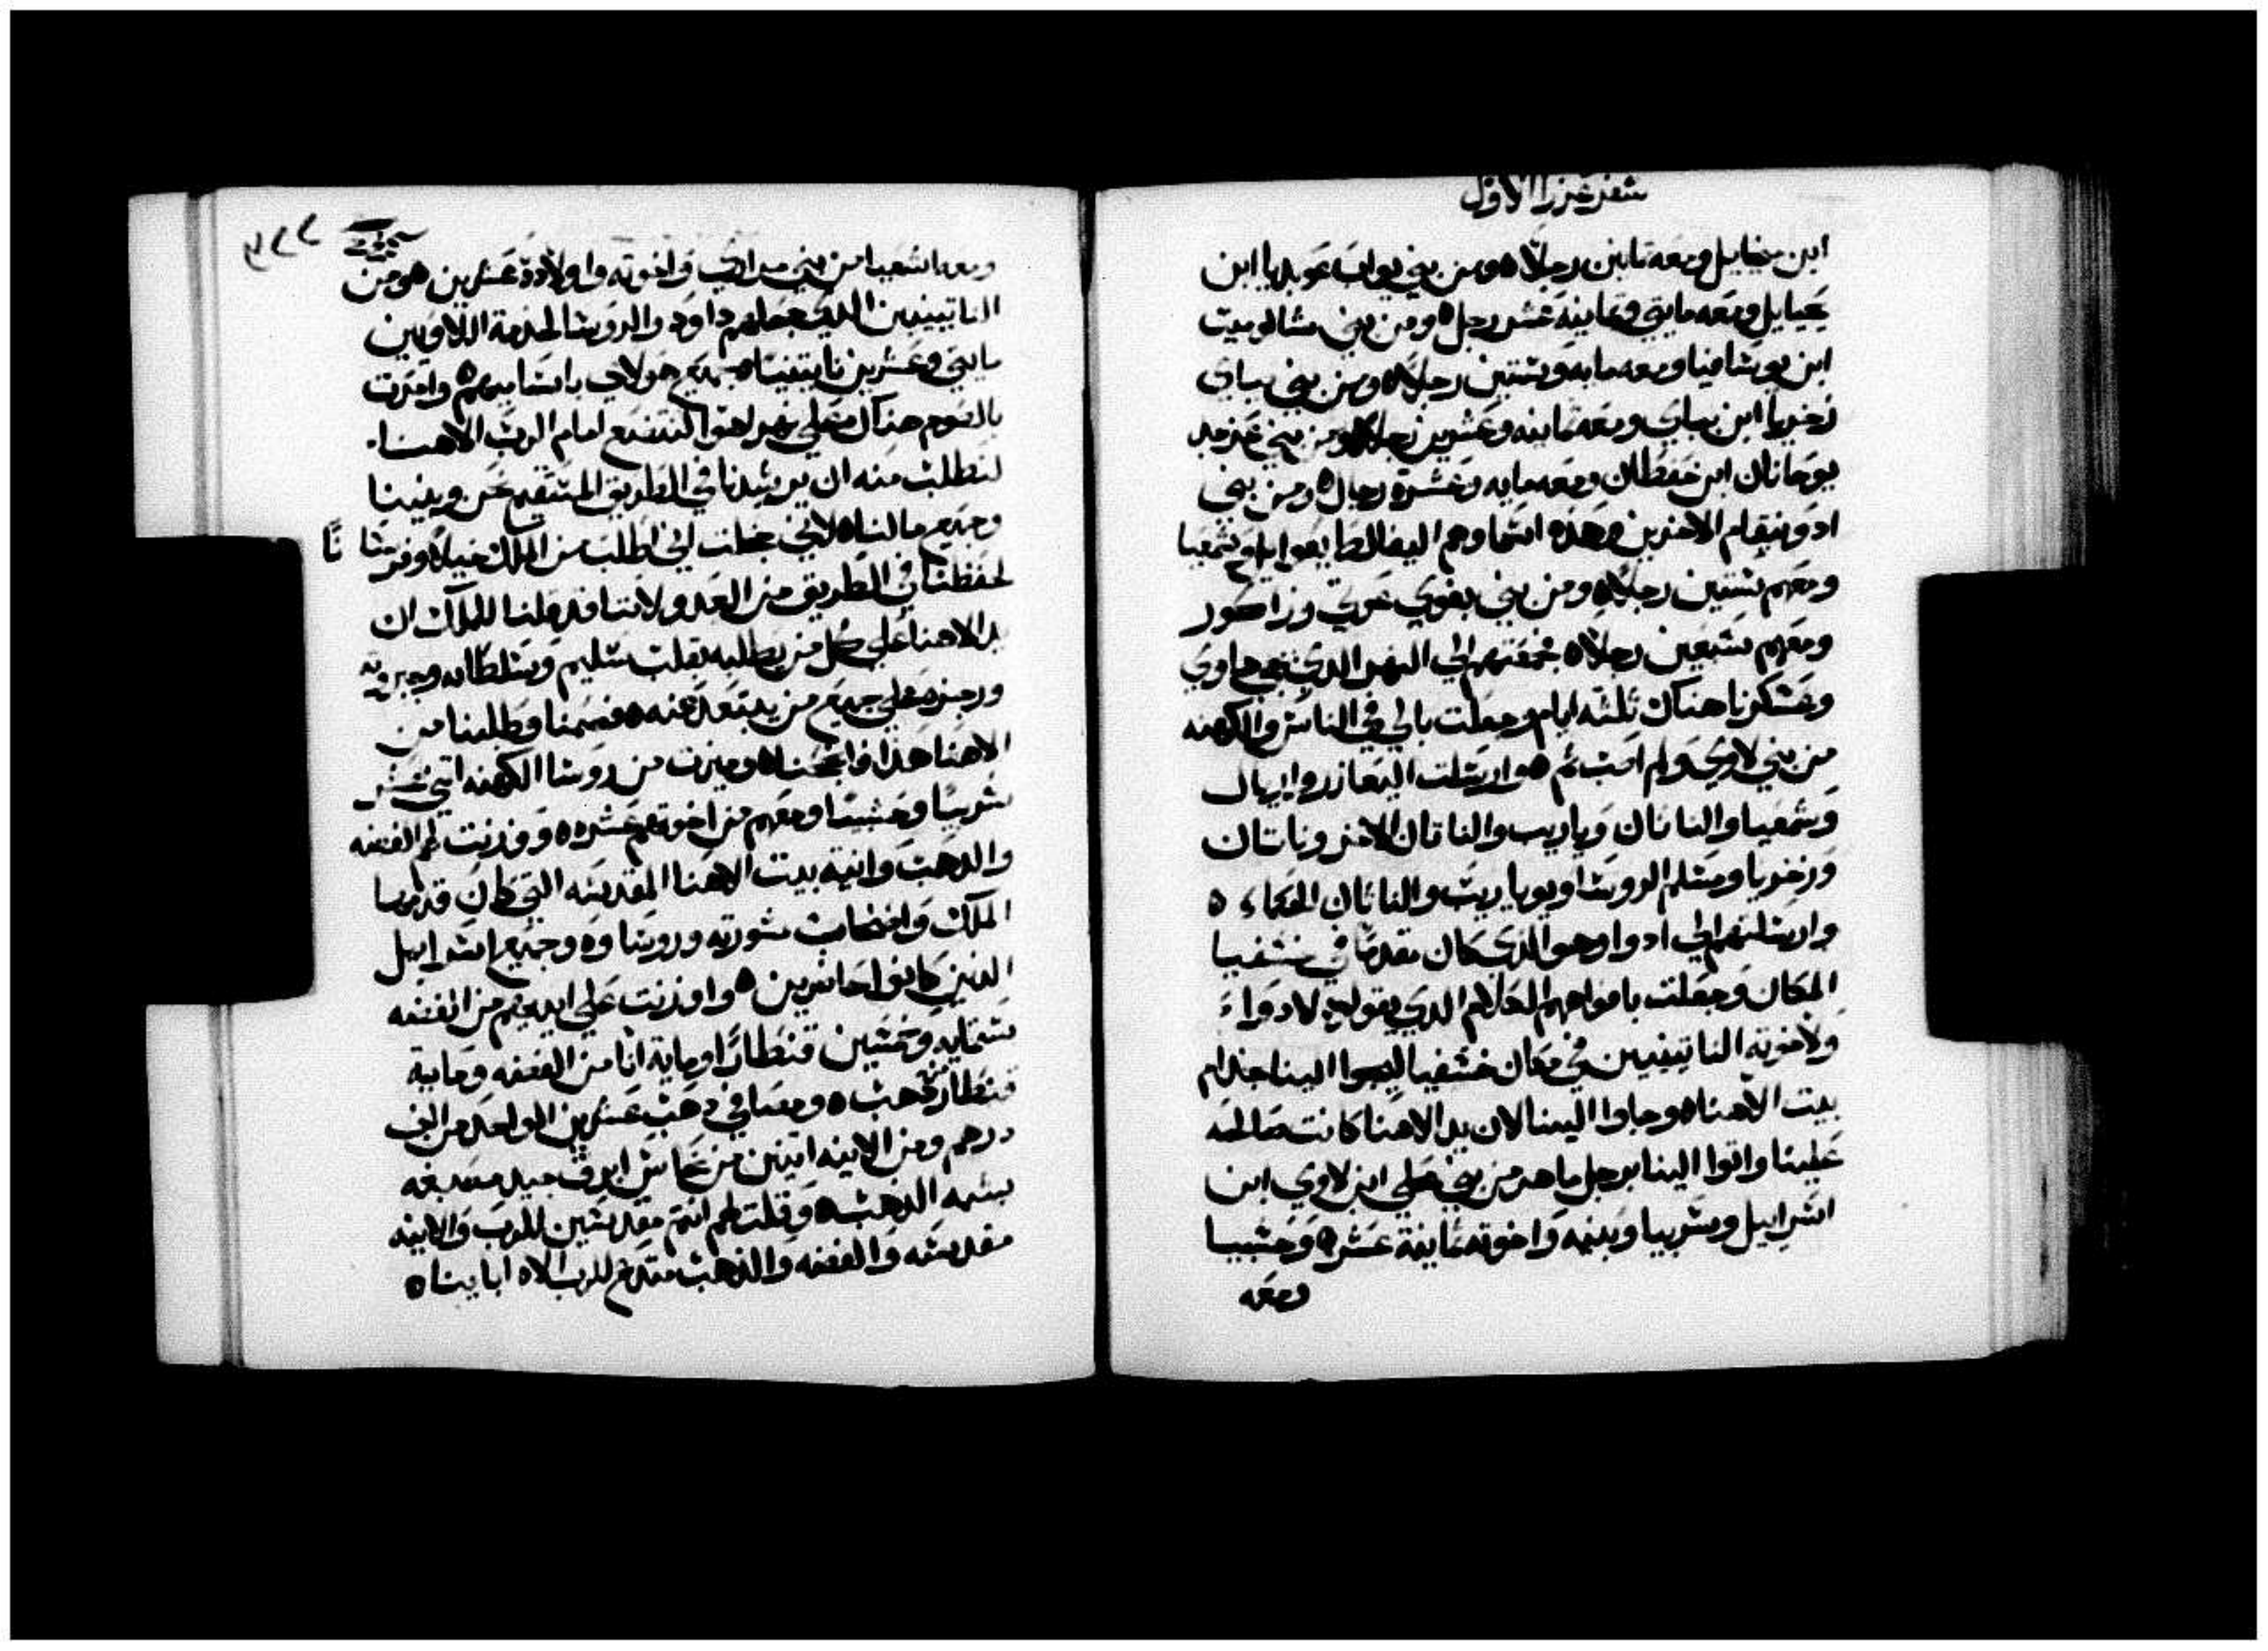 سفر عزرا الاول
ابن ميخايل ومعه تمانين رجلاً ٥ ومن بني يواب عوبديا ابن
يحيايل ومعه مايتي وثمانيه عشر رجل ٥ ومن بني سالوميت
ابن يوسافيا ومعه مايه وستين رجلاً ٥ ومن بني باباي
زخريا ابن باباي ومعه ثمانيه وعشرين رجلاً ٥ ومن بني عزجد
يوحانان ابن حقطان ومعه مايه وعشرة رجال ٥ ومن بني
ادونيقام الاخرين وهذه اسماوهم اليفالط يعوايل وشمعيا
ومعهم ستين رجلاً ٥ ومن بني بغوي عوتي وزاكور
ومعهم سبعين رجلاً ٥ فجمعتهم الي النهر الذي يجي حاوي
وعسكرنا هناك ثلثه ايام وجعلت بالي في الناس والكهنه
من بني لاوي ولم اصب ثم ٥ وارسلت اليعازر واريال
وشمعيا والناتان وياريب والناتان الاخر وناتان
وزخريا ومسلم الروسا ويوياريب والناتان الحكماء ٥
وارسلتهم الي ادوا وهو الذي كان مقدماً في خسفيا
المكان وجعلت بافواههم الكلام الذي يقولوه لادواء
ولاخوته الناتينيين في مكان خسفيا ليجوا الينا خدام
بيت الاهنا ٥ وجاوا الينا لان يد الاهنا كانت صالحه
علينا واتوا الينا برجل ماهر من بني محلي ابن لاوي ابن
اسرايل وسربيا وبنيه واخوته ثمانية عشر ٥ وحشبيا
ومعه
٣٢٢
ومعه اشعيا من بني مراري واخوته واولادة عشرين هو من
الناتينيين الذي جعلهم داود والروسا لخدمة اللاويين
مايتي وعشرين ناتينيا ٥ جميع هولاي باسماييهم ٥ وامرت
بالصوم هناك علي نهر اهوا لنتضع امام الرب الاهنا
لنطلب منه ان يرشدنا في الطريق المستقيم نحن وبنينا
وجميع مالنا ٥ لاني خجلت اني اطلب من الملك خيلاً وفرسانًا
لحفظنا في الطريق من العدو لاننا قد قلنا للملك ان
يد الاهنا علي كل من يطلبه بقلب سليم وسلطانه وجبروته
ورجزه علي جميع من يبتعد عنه ٥ فصمنا وطلبنا من
الاهنا هذا فانجحنا ٥ وميزت من روسا الكهنه اتني عشر
سربيا وحشبيا ومعهم من اخوتهم عشره ٥ ووزنت لهم الفضه
والدهب وانية بيت الاهنا المقدسه التي كان قدمها
الملك واصحاب مشورته وروساوه وجميع اسرايل
الذين كانوا حاضرين ٥ واوزنت علي ايديهم من الفضه
ستمايه وخمسين قنطارًا ومايه انا من الفضه وماية
قنطار دهب ٥ ومصافي دهب عشرين الواحد من الف
درهم ومن الانيه اتنين من نحاس ابرق جيد مصبغه
بشبه الدهب ٥ وقلت لهم انتم مقدسين للرب والانيه
مقدسه والفضه والذهب متبرع للرب الاه اباينا ٥